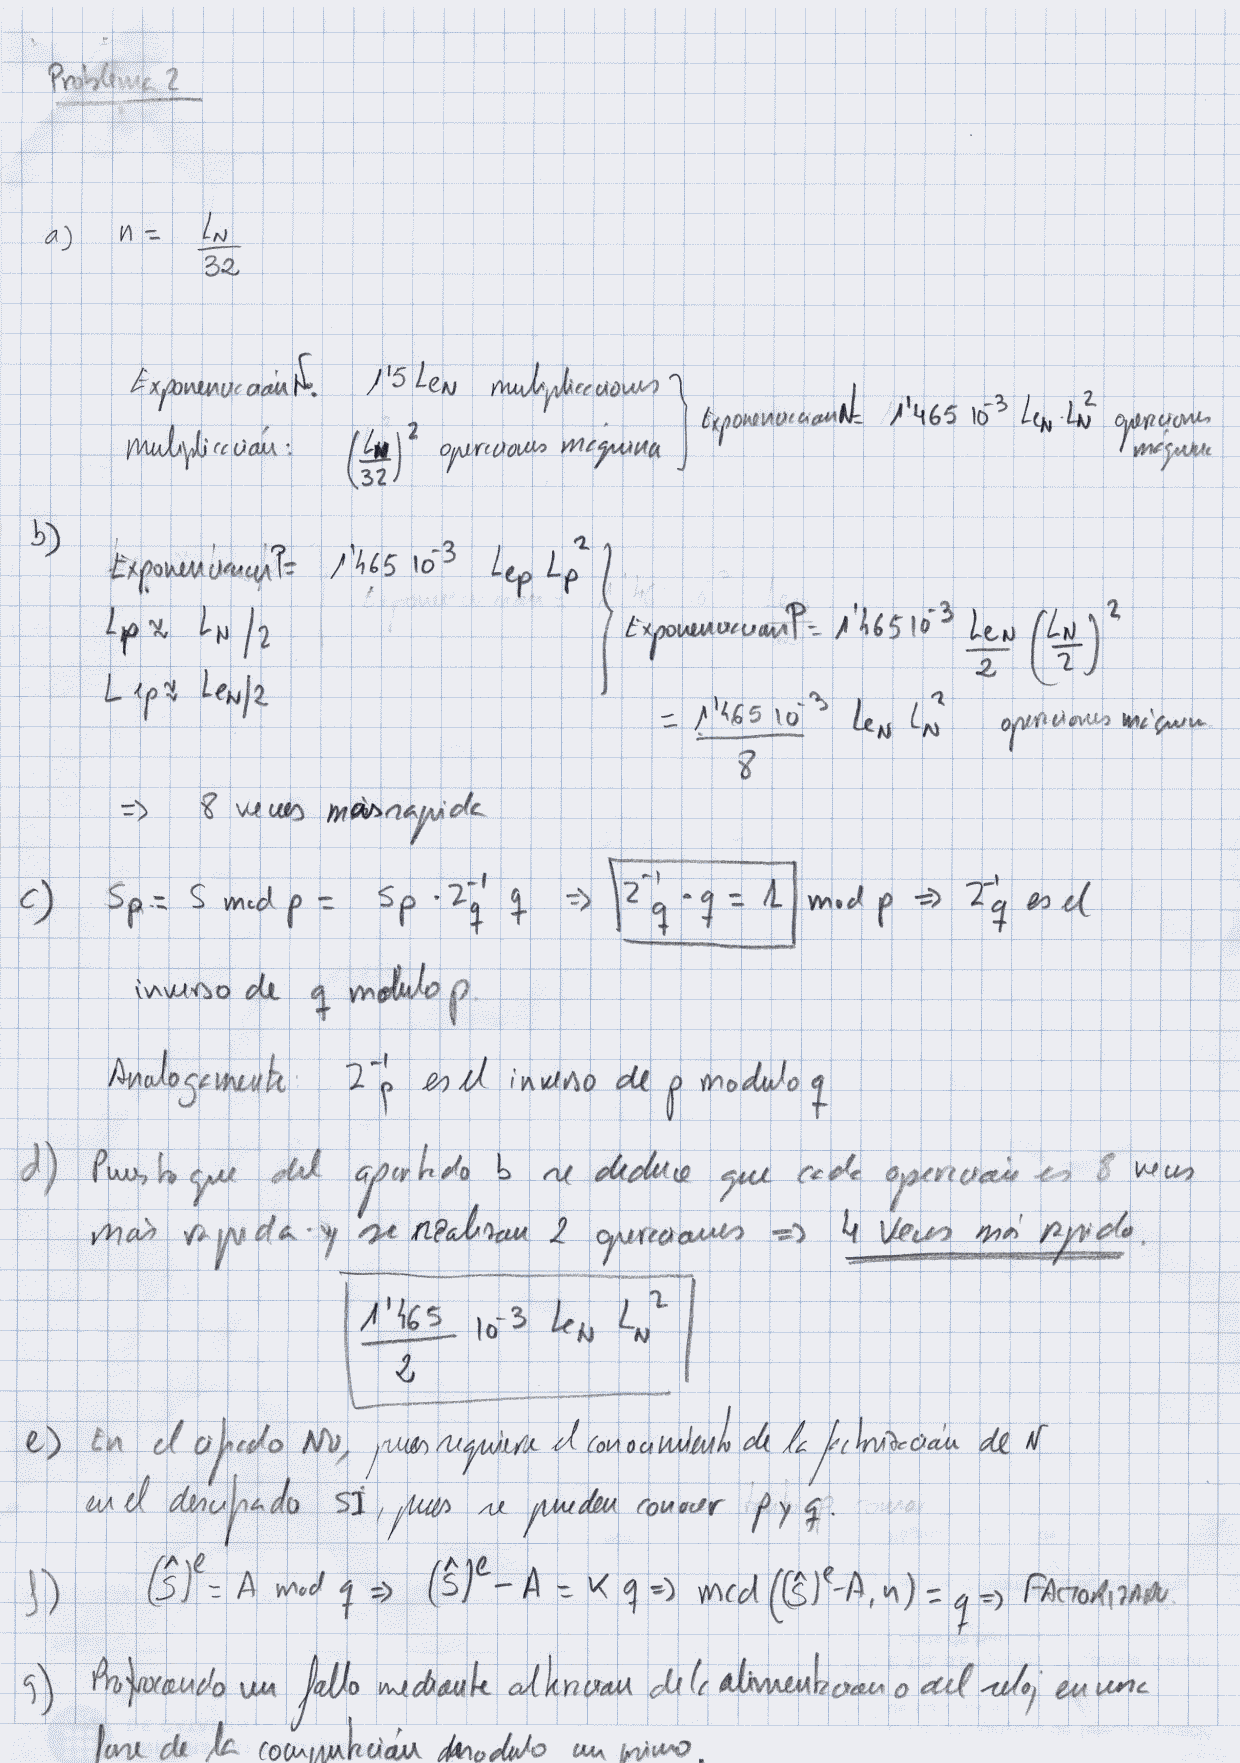 Problema 2
a) n = L_N / 32
Exponenciación N: 1'5 Le_N multiplicaciones
multiplicación: (L_N/32)^2 operaciones máquina } Exponenciación N = 1'465 10^-3 Le_N · L_N^2 operaciones máquina
b)
Exponenciación P = 1'465 10^-3 Le_p L_p^2
L_p ≈ L_N/2
Le_p ≈ Le_N/2 } Exponenciación P = 1'465 10^-3 Le_N/2 (L_N/2)^2
= 1'465 10^-3 / 8 Le_N L_N^2 operaciones máquina
=> 8 veces más rapida
c) Sp = S mod p = Sp · 2_q^-1 q => 2_q^-1 · q = 1 mod p => 2_q^-1 es el
inverso de q modulo p.
Analogamente: 2_p^-1 es el inverso de p modulo q
d) Puesto que del apartado b se deduce que cada operación es 8 veces
más rapida y se realizan 2 operaciones => 4 veces más rápido.
1'465/2 10^-3 Le_N L_N^2
e) En el cifrado NO, pues requiere el conocimiento de la factorización de N
en el descifrado SI, pues se pueden conocer p y q.
f) (Ŝ)^e = A mod q => (Ŝ)^e - A = K q => mcd((Ŝ)^e - A, n) = q => FACTORIZADO.
g) Provocando un fallo mediante alteracion de la alimentacion o del reloj en una
fase de la computación modulo un primo.